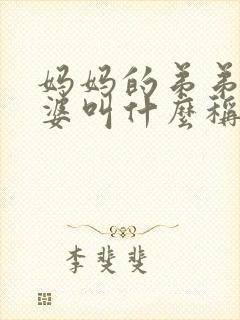 妈妈的弟弟
婆叫什麼稱
李斐斐